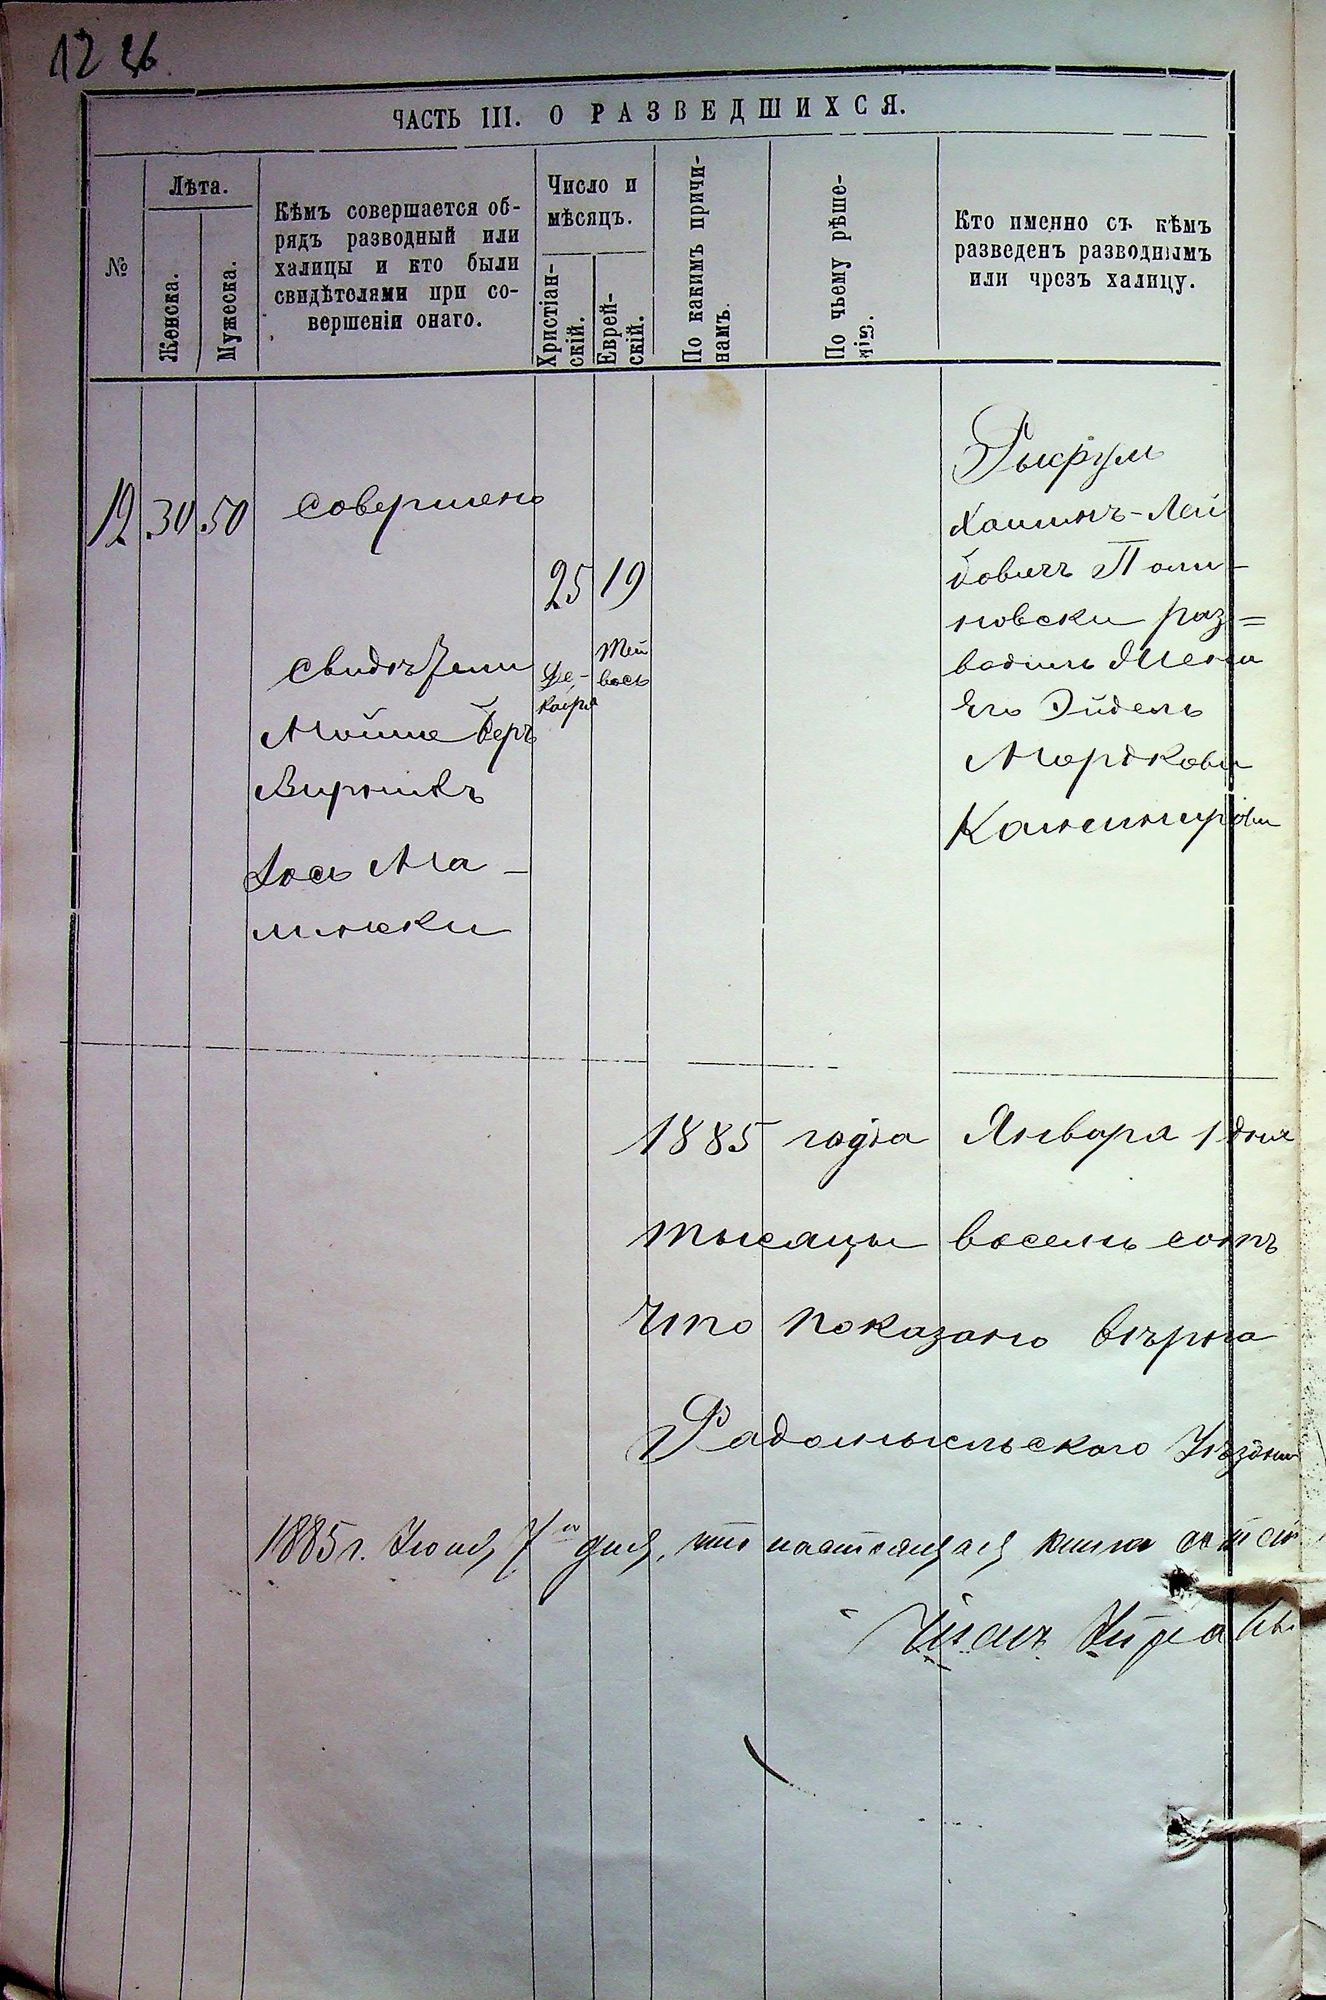 12 36
ЧАСТЬ III. О РАЗВЕДШИХСЯ.
№
Лѣта.
Женска.
Мужеска.
Кѣмъ совершается об-
рядъ разводный или
халицы и кто были
свидѣтелями при со-
вершеніи онаго.
Число и
мѣсяцъ.
Христіан-
скій.
Еврей-
скій.
По какимъ причи-
намъ.
По чьему рѣше-
нію.
Кто именно съ кѣмъ
разведенъ разводнымъ
или чрезъ халицу.
12 30 50
совершено
25 19
Де-
кабря
Тей
васъ
свидѣтели
Мойше Беръ
Лось Ма-
Хаимъ-Лей
бовичъ Поли-
новски раз=
водилъ Жена
Его Эйдель
Мордкови
1885 года Января 1 дня
тысяцы восемь сотъ
Что показано вѣрно
Радомысльского Уѣздни
1885 г. Іюня 7 дня, что настоящая книга